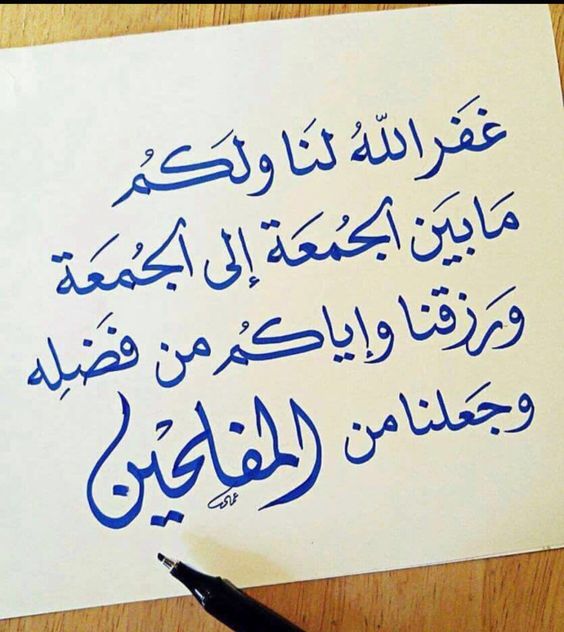 غَفَر اللّهُ لنَا ولَكمُ
مَا بَيَن الجُمعَة إلى الجُمعَة
وَرَزقنا وإياكمُ من فَضَلِه
وجَعلنا من المفلحين